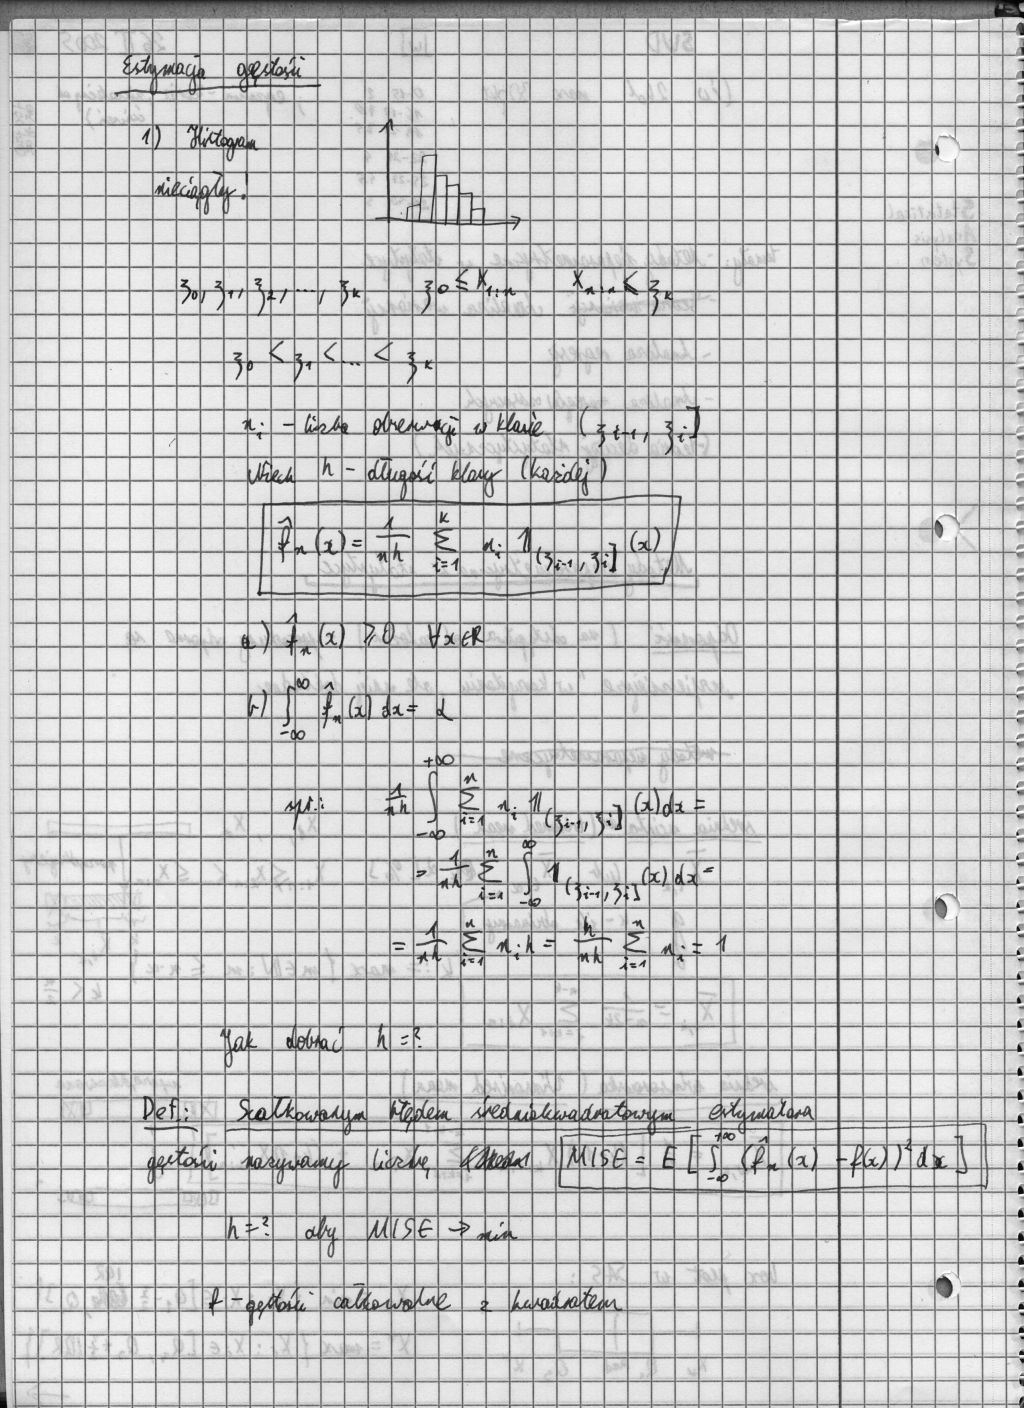 Estymacja gęstości
1) Histogram
nieciągły!
ξ₀, ξ₁, ξ₂, ..., ξₖ   ξ₀ ≤ X₁:ₙ   Xₙ:ₙ ≤ ξₖ
ξ₀ < ξ₁ < ... < ξₖ
nᵢ – liczba obserwacji w klasie (ξᵢ₋₁, ξᵢ]
Niech h – długość klasy (każdej)
f̂ₙ(x) = 1/(nh) Σ_{i=1}^{k} nᵢ 𝟙_{(ξᵢ₋₁, ξᵢ]}(x)
a) f̂ₙ(x) ≥ 0 ∀x∈R
b) ∫_{-∞}^{∞} f̂ₙ(x) dx = 1
spr.: 1/(nh) ∫_{-∞}^{+∞} Σ_{i=1}^{n} nᵢ 𝟙_{(ξᵢ₋₁, ξᵢ]}(x) dx =
= 1/(nh) Σ_{i=1}^{n} ∫_{-∞}^{∞} 𝟙_{(ξᵢ₋₁, ξᵢ]}(x) dx =
= 1/(nh) Σ_{i=1}^{n} nᵢ h = h/(nh) Σ_{i=1}^{n} nᵢ = 1
Jak dobrać h = ?
Def.: Scałkowanym błędem średniokwadratowym estymatora
gęstości nazywamy liczbę MISE = E [∫_{-∞}^{+∞} (f̂ₙ(x) - f(x))² dx]
h = ? aby MISE → min
f – gęstości całkowalne z kwadratem